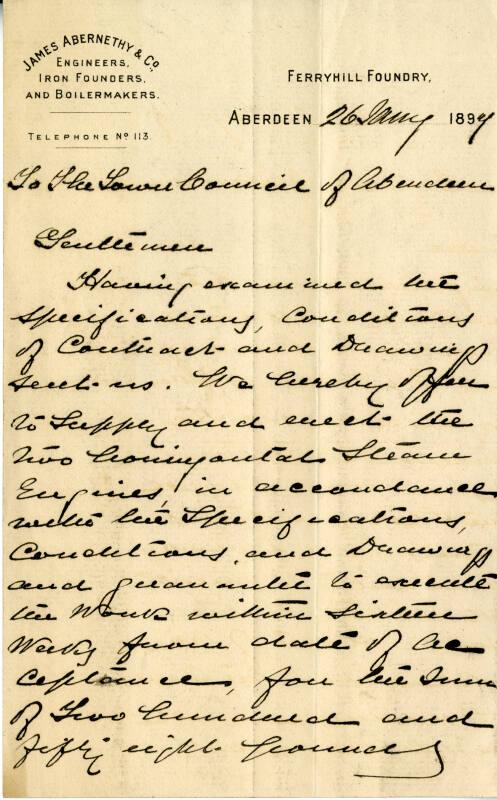 JAMES ABERNETHY & Co.
ENGINEERS,
IRON FOUNDERS,
AND BOILERMAKERS.
TELEPHONE No 113.
FERRYHILL FOUNDRY,
ABERDEEN 26 Jany 1894
To The Town Council of Aberdeen
Gentlemen
Having examined the
Specifications, Conditions
of Contract and Drawings
sent us. We hereby offer
to Supply and erect the
two horizontal Steam
Engines, in accordance
with the Specifications,
Conditions, and Drawings
and guarantee to execute
the Work within Sixteen
Weeks from date of Ac
ceptance, for the Sum
of Two hundred and
fifty eight Pounds